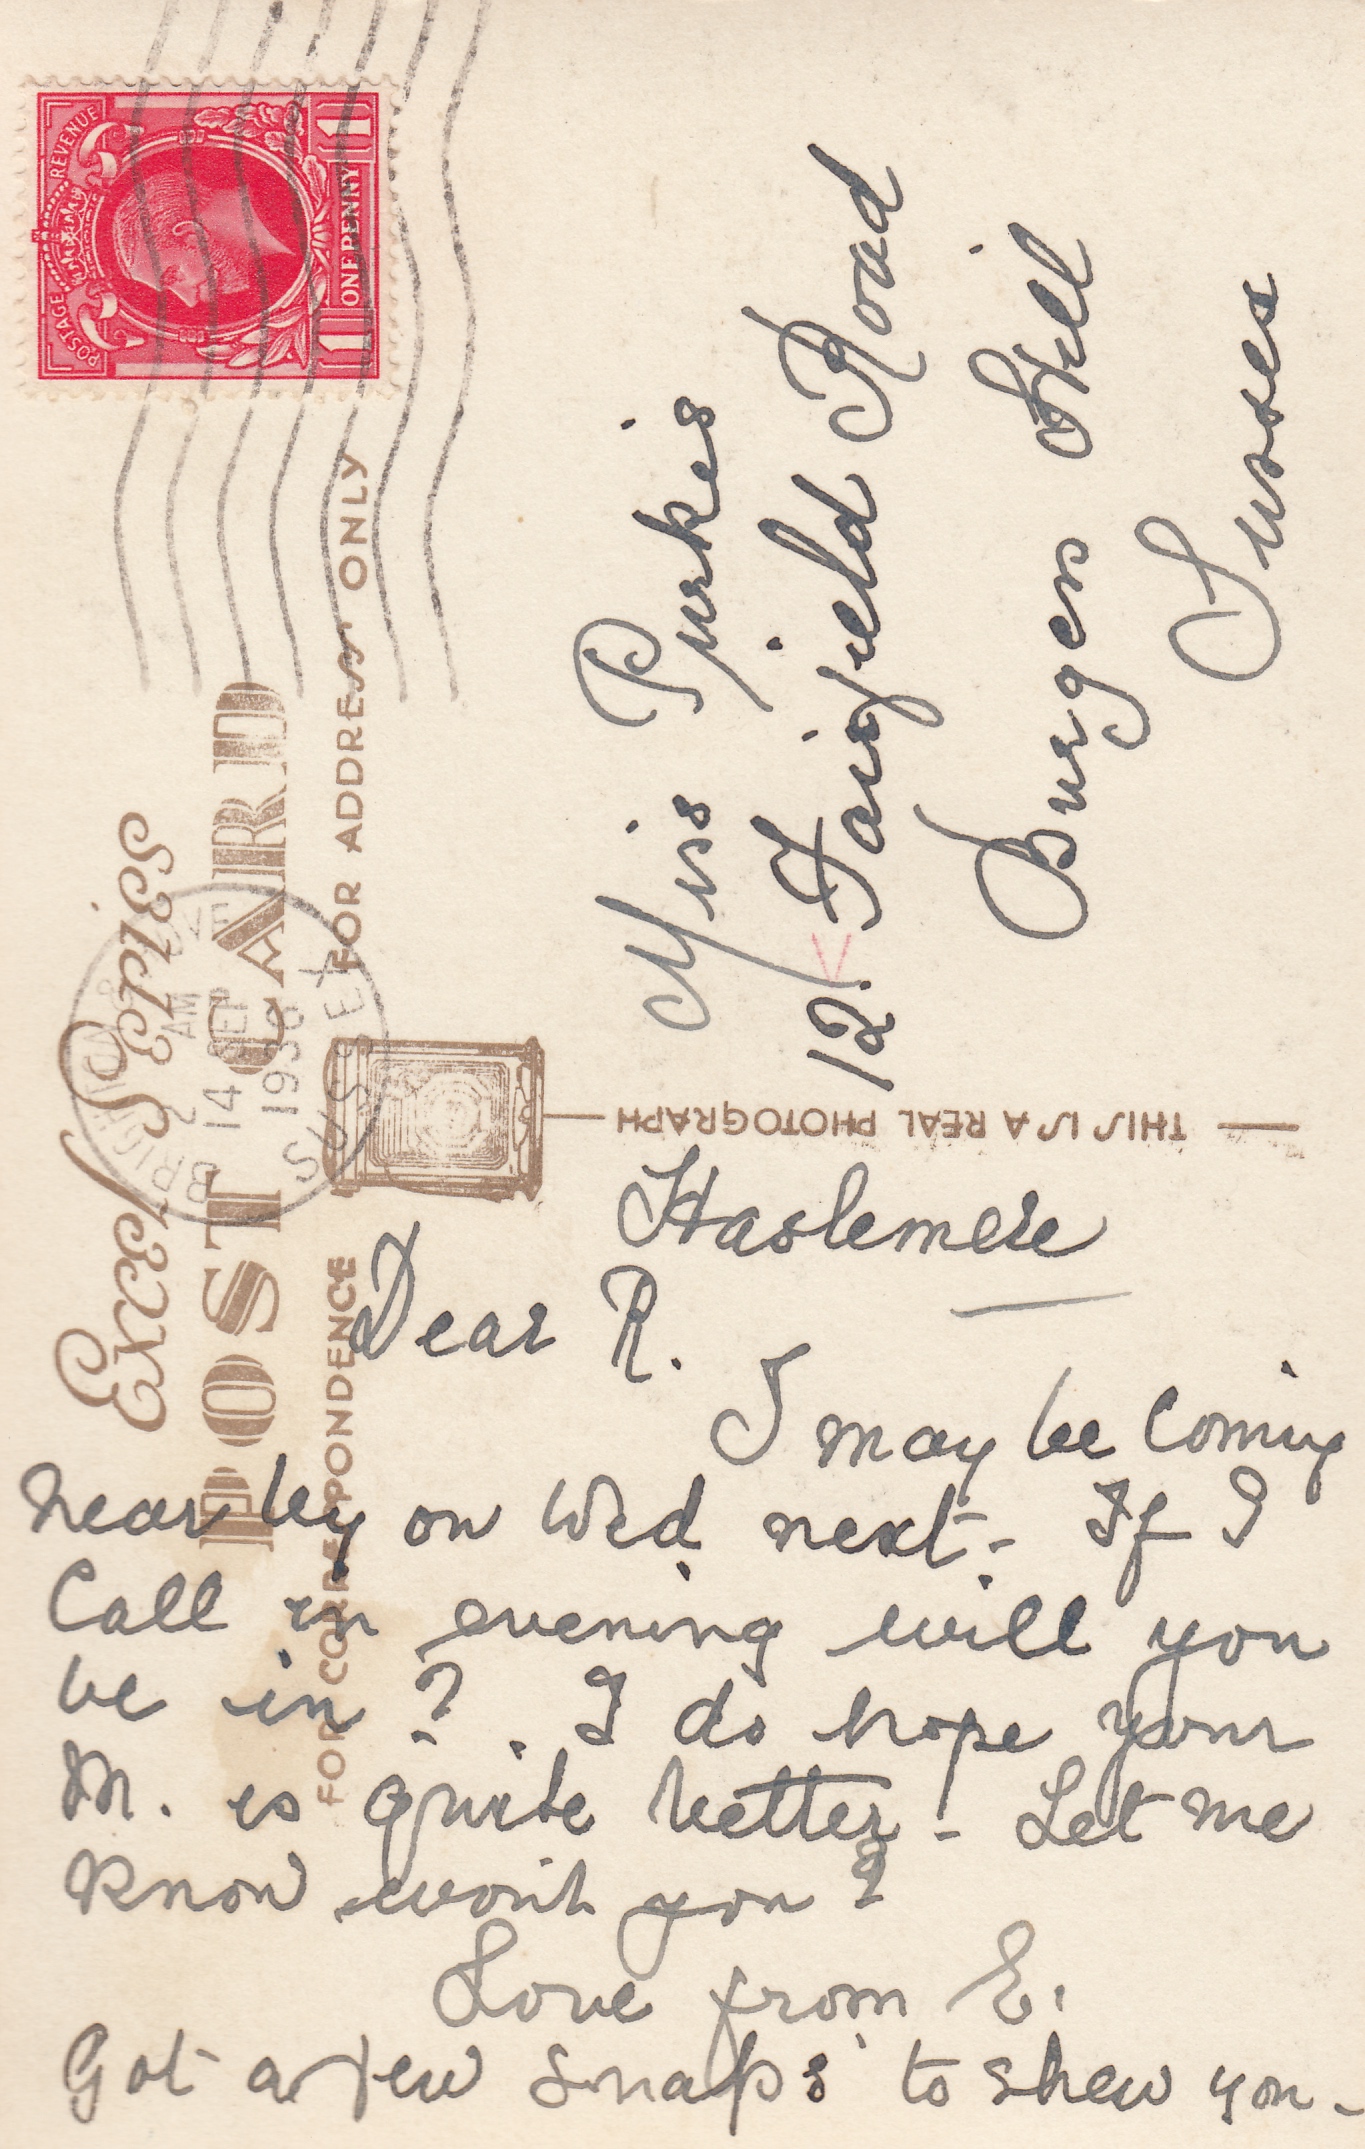 POSTAGE REVENUE
1 ONE PENNY 1
Excel Series
POST CARD
FOR CORRESPONDENCE
FOR ADDRESS ONLY
BRIGHTON & HOVE
2 AM
14 SEP
1936
SUSSEX
THIS IS A REAL PHOTOGRAPH
Miss Purkis
12. Fairfield Road
Burgess Hill
Sussex
Haslemere
Dear R.
I may be coming
near by on Wed next - If I
call in evening will you
be in? . I do hope your
M. is quite better - Let me
know won't you?
Love from E.
Got a few snaps to shew you -